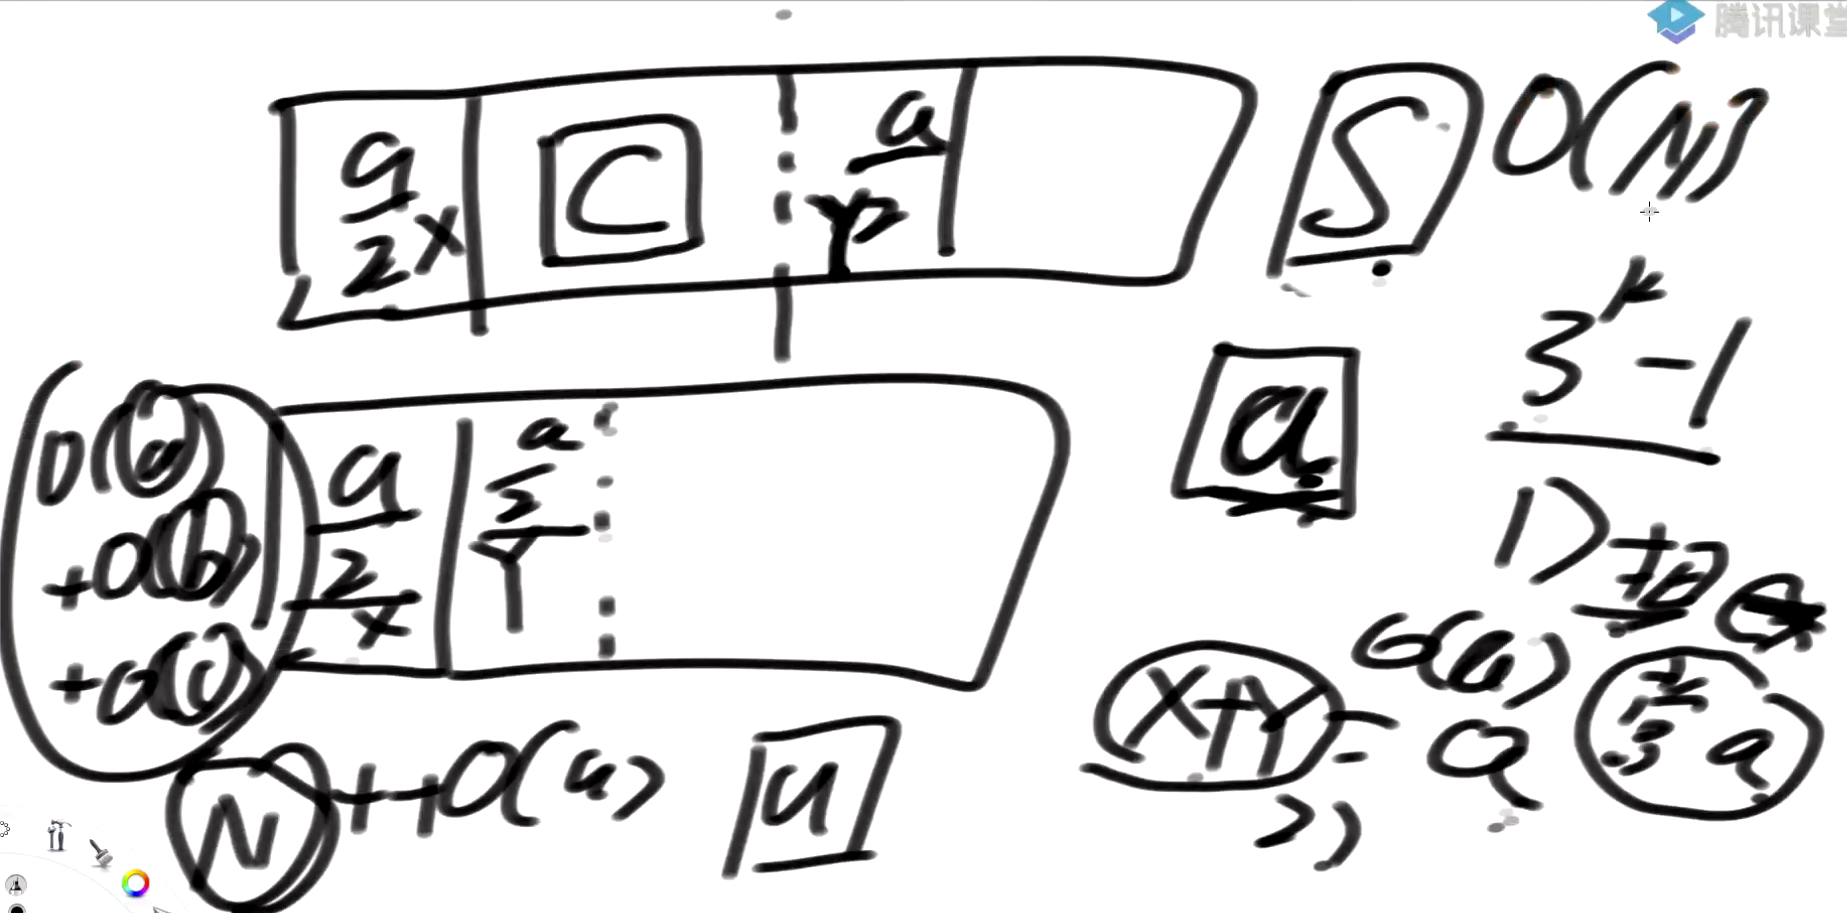 腾讯课堂
a
2X
C
a
Y
S
O(N)
3^k-1
a
O(a)
+O(b)
+O(c)
a
2
X
a
2
Y
1)
O(a)
X+Y=a
2
3 a
2)
N
+O(u)
u